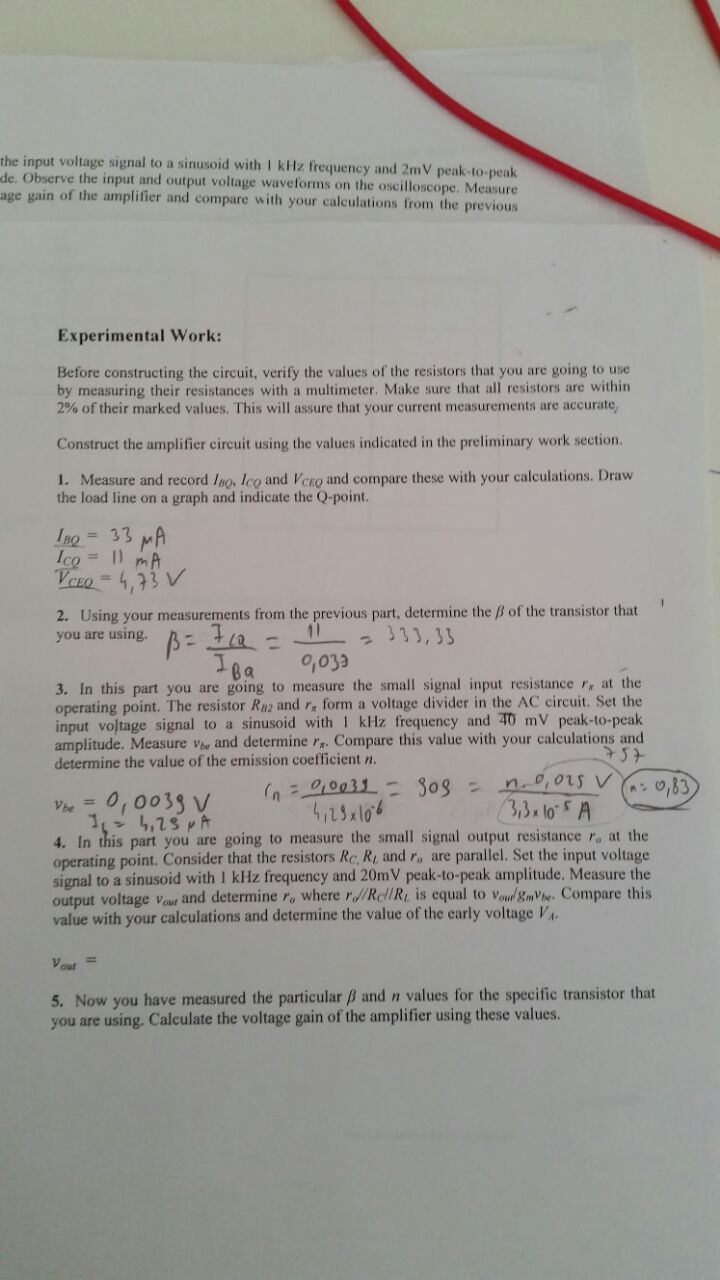 the input voltage signal to a sinusoid with 1 kHz frequency and 2mV peak-to-peak
de. Observe the input and output voltage waveforms on the oscilloscope. Measure
age gain of the amplifier and compare with your calculations from the previous
Experimental Work:
Before constructing the circuit, verify the values of the resistors that you are going to use
by measuring their resistances with a multimeter. Make sure that all resistors are within
2% of their marked values. This will assure that your current measurements are accurate.
Construct the amplifier circuit using the values indicated in the preliminary work section.
1. Measure and record IBQ, ICQ and VCEQ and compare these with your calculations. Draw
the load line on a graph and indicate the Q-point.
IBQ = 33 µA
ICQ = 11 mA
VCEQ = 4,73 V
2. Using your measurements from the previous part, determine the β of the transistor that
you are using. β = ICQ / IBQ = 11 / 0,033 = 333,33
3. In this part you are going to measure the small signal input resistance rπ at the
operating point. The resistor RB2 and rπ form a voltage divider in the AC circuit. Set the
input voltage signal to a sinusoid with 1 kHz frequency and 40 mV peak-to-peak
amplitude. Measure vbe and determine rπ. Compare this value with your calculations and
determine the value of the emission coefficient n. 757
vbe = 0,0039 V rπ = 0,0039 / 4,29x10^-6 = 909 = n.0,025 V / 3,3x10^-5 A n=0,83
= 4,29 µA
4. In this part you are going to measure the small signal output resistance ro at the
operating point. Consider that the resistors RC, RL and ro are parallel. Set the input voltage
signal to a sinusoid with 1 kHz frequency and 20mV peak-to-peak amplitude. Measure the
output voltage vout and determine ro where ro//RC//RL is equal to vout/gmvbe. Compare this
value with your calculations and determine the value of the early voltage VA.
vout =
5. Now you have measured the particular β and n values for the specific transistor that
you are using. Calculate the voltage gain of the amplifier using these values.